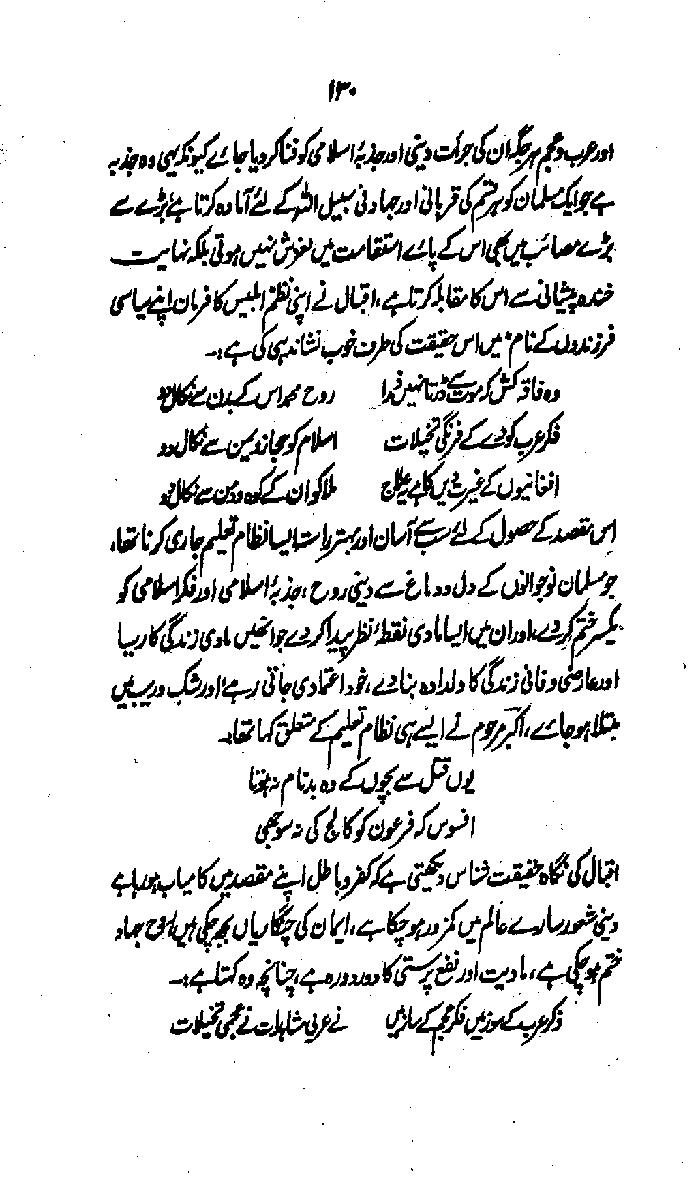 ۱۳۰
اور عرب و عجم ہر جگہ ان کی حرکت دینی اور جذبۂ اسلامی کو فنا کر دیا جائے کیونکہ یہی وہ جذبہ
ہے جو ایک مسلمان کو ہر قسم کی قربانی اور جہاد فی سبیل اللہ کے لئے آمادہ کرتا ہے بڑے سے
بڑے مصائب میں بھی اس کے پائے استقامت میں لغزش نہیں ہوتی بلکہ نہایت
خندہ پیشانی سے اس کا مقابلہ کرتا ہے، اقبال نے اپنی نظم "ابلیس کا فرمان اپنے سیاسی
فرزندوں کے نام" میں اس حقیقت کی طرف خوب نشاندہی کی ہے:۔
وہ فاقہ کش کہ موت سے ڈرتا نہیں ذرا روح محمد اس کے بدن سے نکال دو
فکر عرب کو دے کے فرنگی تخیلات اسلام کو حجاز و یمن سے نکال دو
افغانیوں کے غیرت دیں کا ہے یہ علاج ملا کو ان کے کوہ و دمن سے نکال دو
اس مقصد کے حصول کے لئے سب سے آسان اور بہتر بات ایسا نظام تعلیم جاری کرنا تھا،
جو مسلمان نوجوانوں کے دل و دماغ سے دینی روح، جذبۂ اسلامی اور فکر اسلامی کو
یکسر ختم کر دے، اور ان میں ایسا مادی نقطۂ نظر پیدا کر دے جو انھیں مادی زندگی کا رسیا
اور عارضی و فانی زندگی کا دلدادہ بنا دے، خود اعتمادی جاتی رہے، اور شک و ریب میں
مبتلا ہو جائے، اکبر مرحوم نے ایسے ہی نظام تعلیم کے متعلق کہا تھا۔
یوں قتل سے بچوں کے وہ بدنام نہ ہوتا
افسوس کہ فرعون کو کالج کی نہ سوجھی
اقبال کی نگاہ حقیقت شناس دیکھتی ہے کہ کفر و باطل اپنے مقصد میں کامیاب ہو رہا ہے
دینی شعور سارے عالم میں کمزور ہو چکا ہے، ایمان کی چنگاریاں بجھ چکی ہیں، روح جہاد
ختم ہو چکی ہے، مادیت اور نفع پرستی کا دور دورہ ہے، چنانچہ وہ کہتا ہے:۔
ذکر عرب کے سوز میں فکر عجم کے ساز میں نے عربی مشاہدات نے عجمی تخیلات